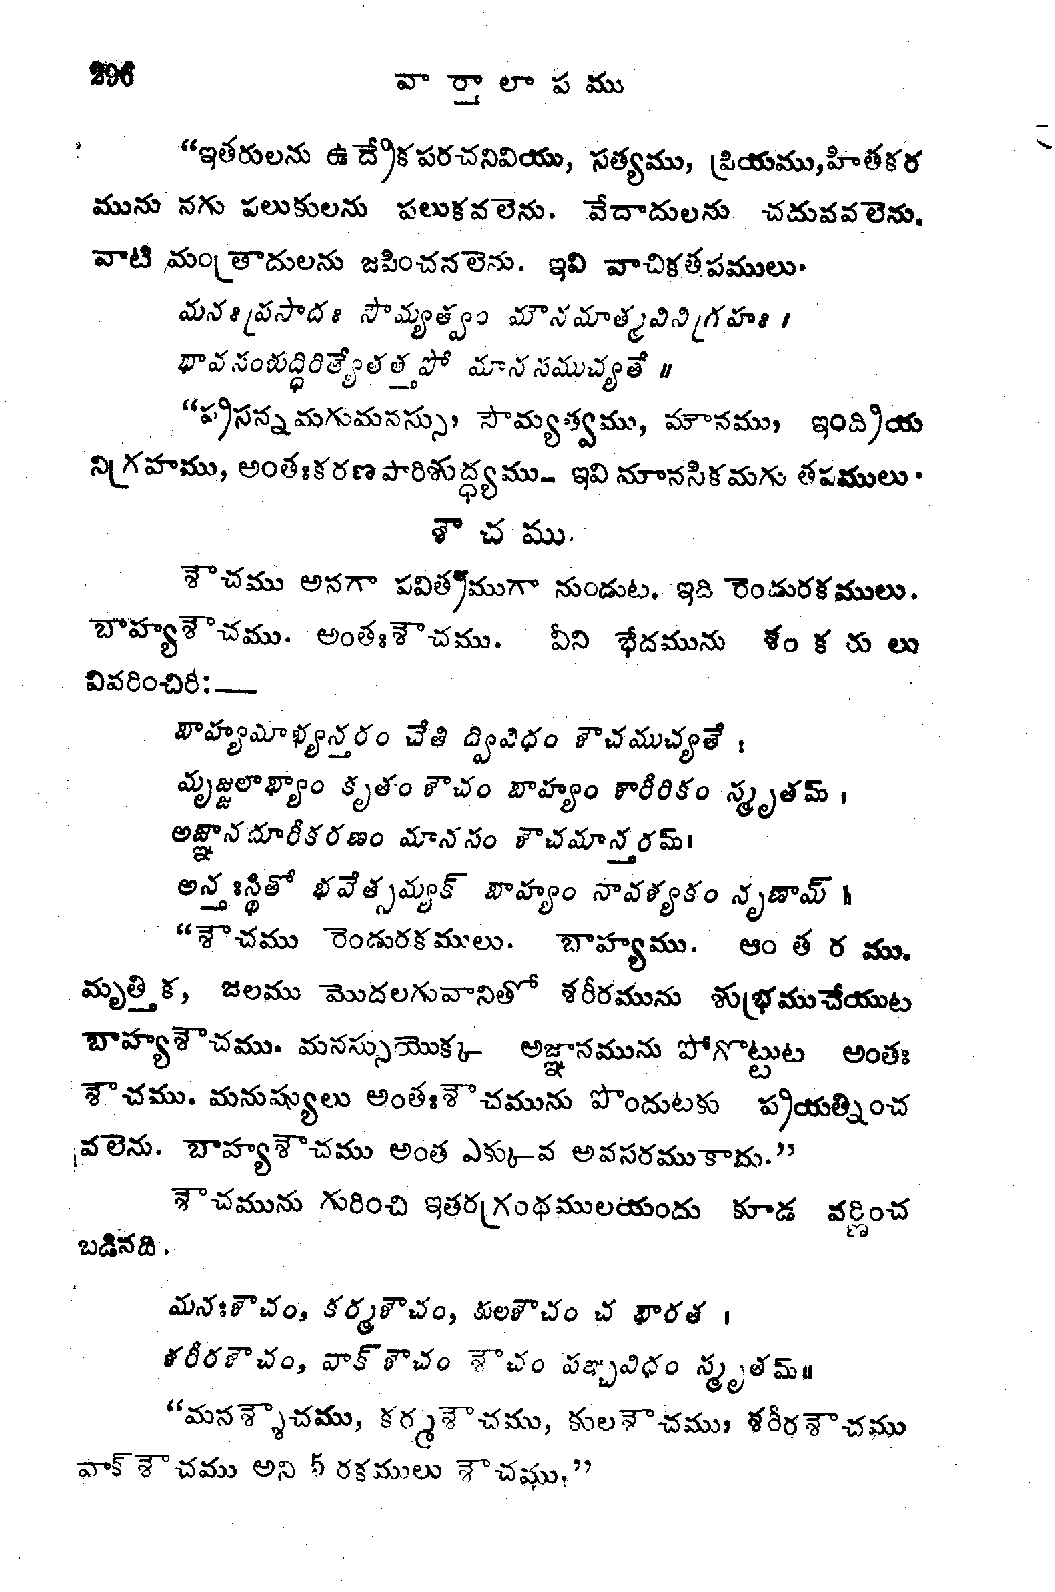 296
వార్తాలాపము
“ఇతరులను ఉద్రేకపరచనివియు, సత్యము, ప్రియము,హితకర
మును నగు పలుకులను పలుకవలెను. వేదాదులను చదువవలెను.
వాటి మంత్రాదులను జపించవలెను. ఇవి వాచికతపములు.
మనఃప్రసాదః సౌమ్యత్వం మౌనమాత్మవినిగ్రహః ।
భావసంశుద్ధిరిత్యేతత్తపో మానసముచ్యతే ॥
“ప్రసన్నమగుమనస్సు, సౌమ్యత్వము, మౌనము, ఇంద్రియ
నిగ్రహము, అంతఃకరణపారిశుద్ధ్యము- ఇవి మానసికమగు తపములు.
శౌచము.
శౌచము అనగా పవిత్రముగా నుండుట. ఇది రెండురకములు.
బాహ్యశౌచము. అంతఃశౌచము. వీని భేదమును శంకరులు
వివరించిరి:—
బాహ్యమాభ్యన్తరం చేతి ద్వివిధం శౌచముచ్యతే ;
మృజ్జలాభ్యాం కృతం శౌచం బాహ్యం శారీరికం స్మృతమ్ ।
అజ్ఞానదూరీకరణం మానసం శౌచమాన్తరమ్।
అన్తఃస్థితో భవేత్సమ్యక్ బాహ్యం నావశ్యకం నృణామ్ ॥
“శౌచము రెండురకములు. బాహ్యము. ఆంతరము.
మృత్తిక, జలము మొదలగువానితో శరీరమును శుభ్రముచేయుట
బాహ్యశౌచము. మనస్సుయొక్క అజ్ఞానమును పోగొట్టుట అంతః
శౌచము. మనుష్యులు అంతఃశౌచమును పొందుటకు ప్రయత్నించ
వలెను. బాహ్యశౌచము అంత ఎక్కువ అవసరముకాదు.”
శౌచమును గురించి ఇతరగ్రంథములయందు కూడ వర్ణించ
బడినది.
మనఃశౌచం, కర్మశౌచం, కులశౌచం చ భారత ।
శరీరశౌచం, వాక్ శౌచం శౌచం పఞ్చవిధం స్మృతమ్॥
“మనశ్శౌచము, కర్మశౌచము, కులశౌచము, శరీరశౌచము
వాక్ శౌచము అని 5 రకములు శౌచము.”